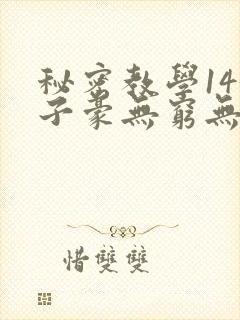 秘密教學14
子豪無窮無
惜雙雙